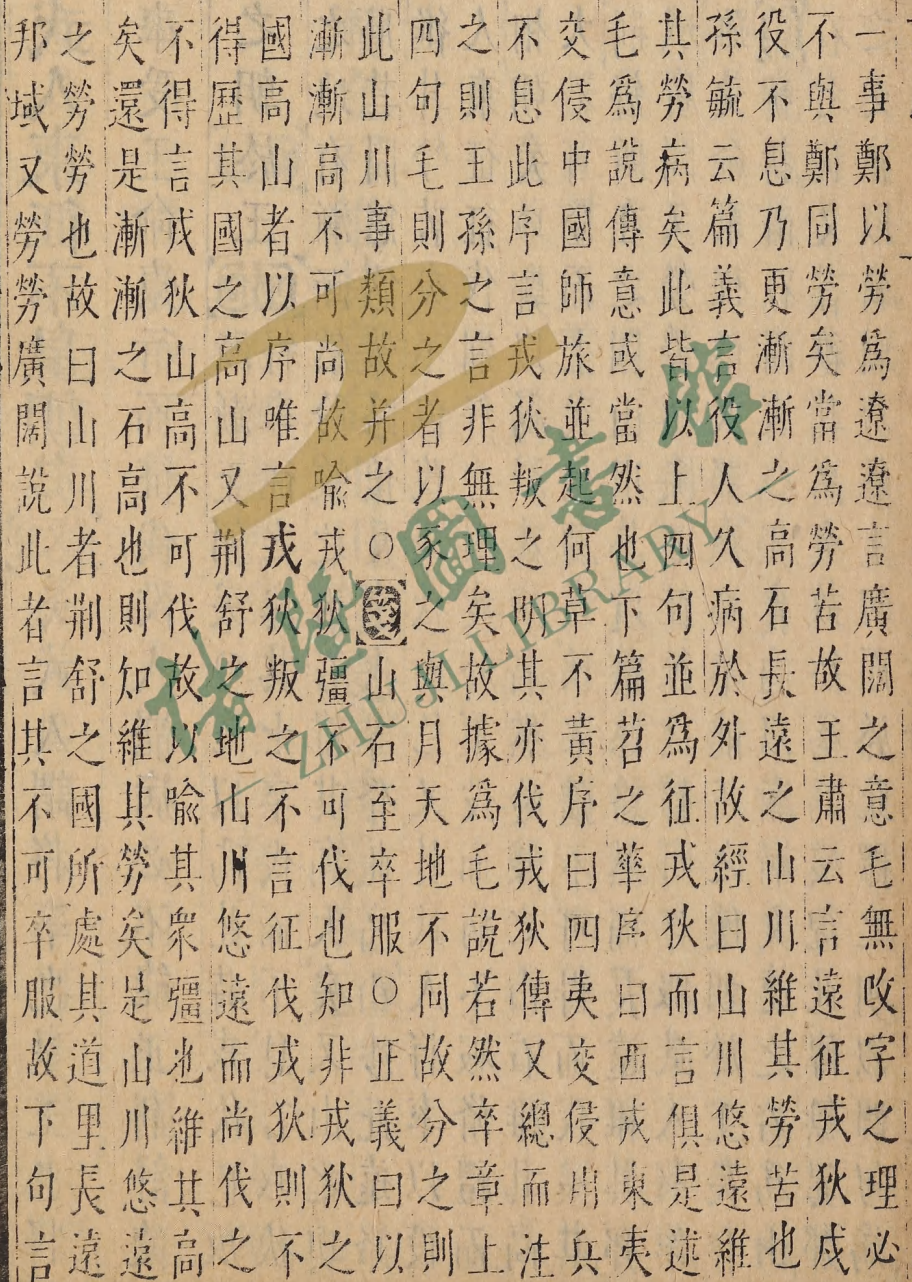 一事鄭以勞爲遼遼言廣闊之意毛無攺字之理必
不與鄭同勞矣當爲勞苦故王肅云言遠征戎狄戍
役不息乃更漸漸之高石長遠之山川維其勞苦也
孫毓云篇義言役人久病於外故經曰山川悠遠維
其勞病矣此皆以上四句並爲征戎狄而言俱是述
毛爲說傳意或當然也下篇苕之華序曰西戎東夷
交侵中國師旅並起何草不黃序曰四夷交侵用兵
不息此序言戎狄叛之明其亦伐戎狄傳又總而注
之則王孫之言非無理矣故據爲毛說若然卒章上
四句毛則分之者以豕之與月天地不同故分之則
此山川事類故并之○箋山石至卒服○正義曰以
漸漸高不可尚故喻戎狄彊不可伐也知非戎狄之
國高山者以序唯言戎狄叛之不言征伐戎狄則不
得歷其國之高山又荆舒之地山川悠遠而尚伐之
不得言戎狄山高不可伐故以喻其衆彊也維其高
矣還是漸漸之石高也則知維其勞矣是山川悠遠
之勞勞也故曰山川者荆舒之國所處其道里長遠
邦域又勞勞廣闊說此者言其不可卒服故下句言
諸暨圖書館
ZHUJI LIBRARY